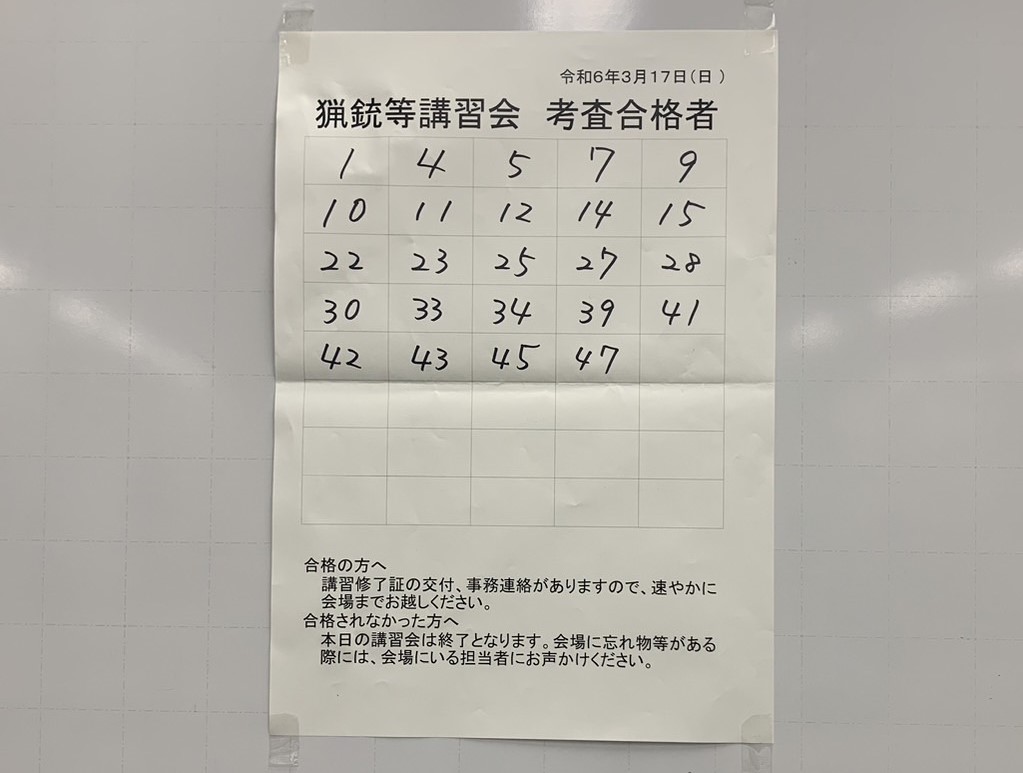 令和6年3月17日(日 )
猟銃等講習会　考査合格者
1 4 5 7 9
10 11 12 14 15
22 23 25 27 28
30 33 34 39 41
42 43 45 47
合格の方へ
講習修了証の交付、事務連絡がありますので、速やかに
会場までお越しください。
合格されなかった方へ
本日の講習会は終了となります。会場に忘れ物等がある
際には、会場にいる担当者にお声かけください。